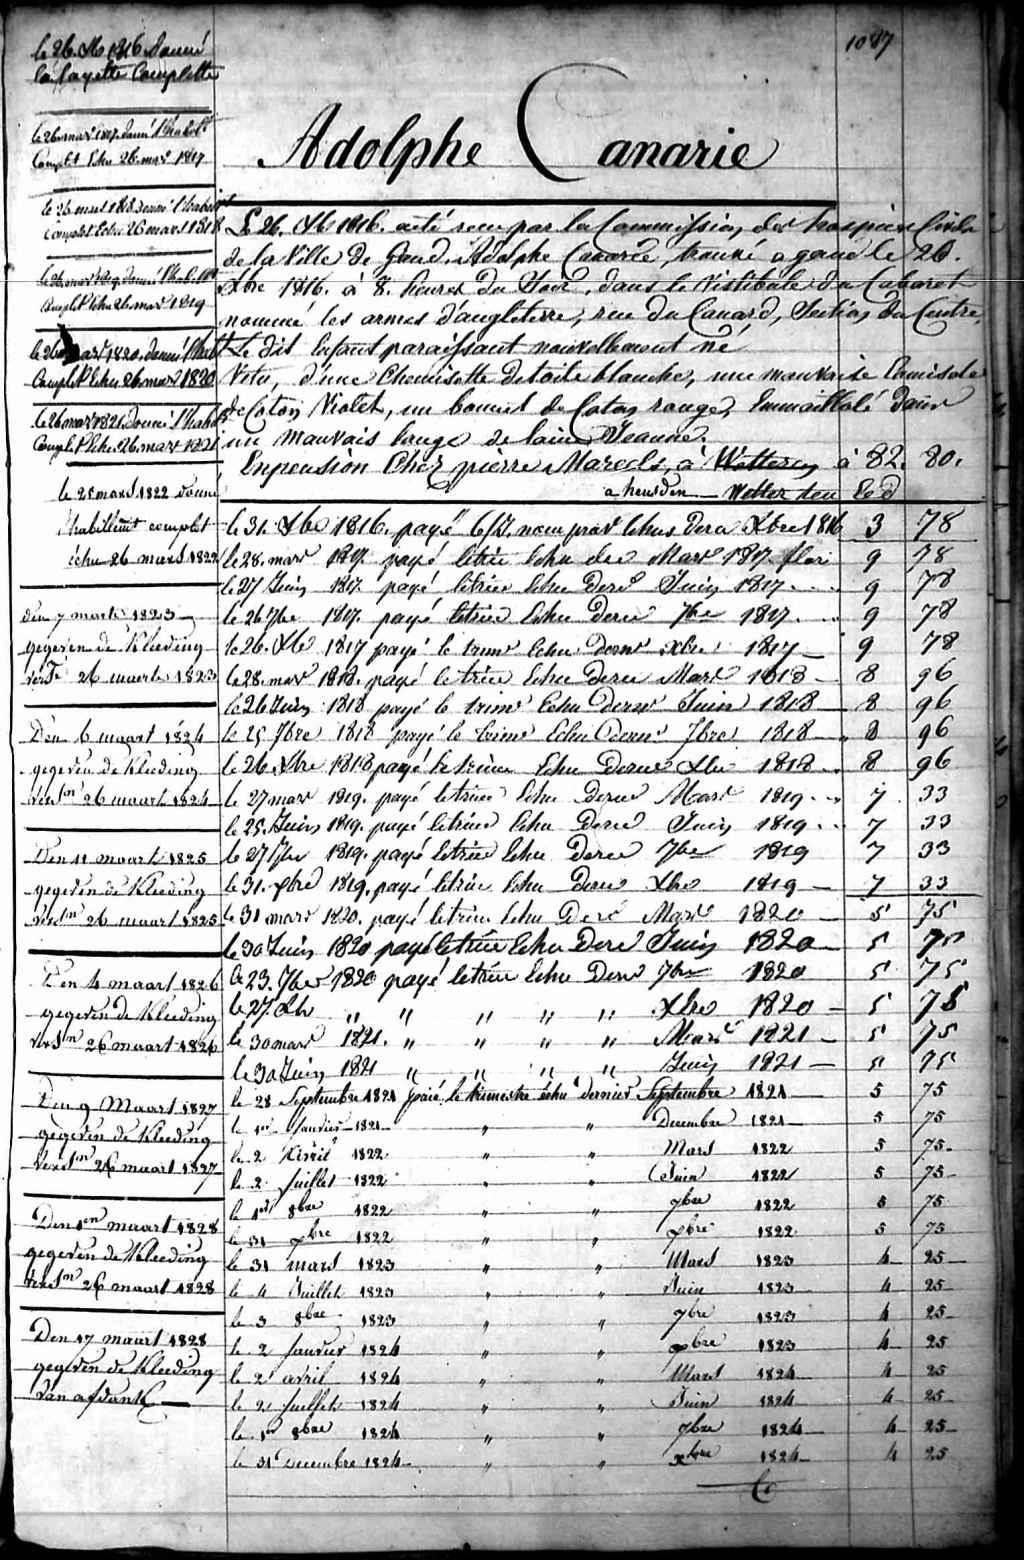 1087
Adolphe Canarie
le 26. Xbre 1816 donné
la layette Complette
le 26 mars 1817. donné l'habill.t
Complet Echu 26 mars 1817
le 26 mars 1818 donné l'habill.t
Complet Echu 26 mars 1818
le 26 mars 1819 donné l'habill.t
Complet Echu 26 mars 1819
le 26 mars 1820. donné l'habill.t
Complet Echu 26 mars 1820
le 26 mars 1821. donné l'habill.t
Complet Echu 26 mars 1821
le 28 mars 1822 donné
l'habillemt complet
échu 26 mars 1822
den 7 maerte 1823
gegeven de Kleeding
26 maerte 1823
Den 6 maart 1824
gegeven de Kleeding
26 maart 1824
Den 11 maart 1825
gegeven de Kleeding
26 maart 1825
Den 4 maart 1826
gegeven de Kleeding
26 maart 1826
Den 9 Maart 1827
gegeven de Kleeding
26 maart 1827
Den 1en maart 1828
gegeven de Kleeding
26 maart 1828
Den 17 maart 1828
gegeven de Kleeding
van afdank
Le 26. Xbre 1816. a été recu par la Commission des hospices Civils
de la Ville de Gand. Adolphe Canarie, trouvé a gand le 26.
Xbre 1816. à 8. heures du Soir, dans le Vestibule du Cabaret
nommé les armes d'angleterre, rue du Canard, Section du Centre,
Le dit Enfant paraissant nouvellement né
Vetu, d'une Chemisette de toile blanche, une mauvaise Camisole
de Coton Violet, un bonnet de Coton rouge, Emmailloté dans
un mauvais lange de laine Jeaune.
En pension Chez pierre Marcels, à Wetteren à 82. 80.
a heusden — Wetteren
le 31. Xbre 1816. payé Echus Xbre 1816 3 78
le 28. mars 1817. payé letrim Echu Mars 1817. 9 78
le 27 Juin 1817. payé letrim Echu Dere Juin 1817 9 78
le 26 7bre 1817. payé letrim Echu Dere 7bre 1817 9 78
le 26. Xbre 1817 payé le trimr Echu Dernr Xbre 1817 9 78
le 28. mars 1818. payé letrim Echu Dere Mars 1818 8 96
le 26 Juin 1818 payé le trimr Echu Dernr Juin 1818 8 96
le 25 7bre 1818 payé le trimr Echu Dernr 7bre 1818 8 96
le 26. Xbre 1818 payé le trimr Echu Dernr Xbre 1818 8 96
le 27 mars 1819. payé letrim Echu Dere Mars 1819 7 33
le 25. Juin 1819. payé letrim Echu Dere Juin 1819 7 33
le 27 7bre 1819. payé letrim Echu Dere 7bre 1819 7 33
le 31. Xbre 1819. payé letrim Echu Dere Xbre 1819 7 33
le 31 mars 1820. payé letrim Echu Dere Mars 1820 5 75
le 30 Juin 1820 payé letrim Echu Dere Juin 1820 5 75
le 23. 7bre 1820 payé letrim Echu Dere 7bre 1820 5 75
le 27. Xbre " " " " " Xbre 1820 5 75
le 30 mars 1821. " " " " " Mars 1821 5 75
le 30 Juin 1821 " " " " " Juin 1821 5 75
le 28 Septembre 1821 paié le trimestre échu dernier Septembre 1821 5 75
le 1er Janvier 1821 " " Decembre 1821 5 75
le 2 avril 1822 " " Mars 1822 5 75
le 2 Juillet 1822 " " Juin 1822 5 75
le 1er 8bre 1822 " " 7bre 1822 5 75
le 31 xbre 1822 " " xbre 1822 5 75
le 31 mars 1823 " " Mars 1823 4 25
le 4 Juillet 1823 " " Juin 1823 4 25
le 3 8bre 1823 " " 7bre 1823 4 25
le 2 Janvier 1824 " " xbre 1823 4 25
le 2 avril 1824 " " Mars 1824 4 25
le 2 Juillet 1824 " " Juin 1824 4 25
le 1er 8bre 1824 " " 7bre 1824 4 25
le 31 Decembre 1824 " " xbre 1824 4 25